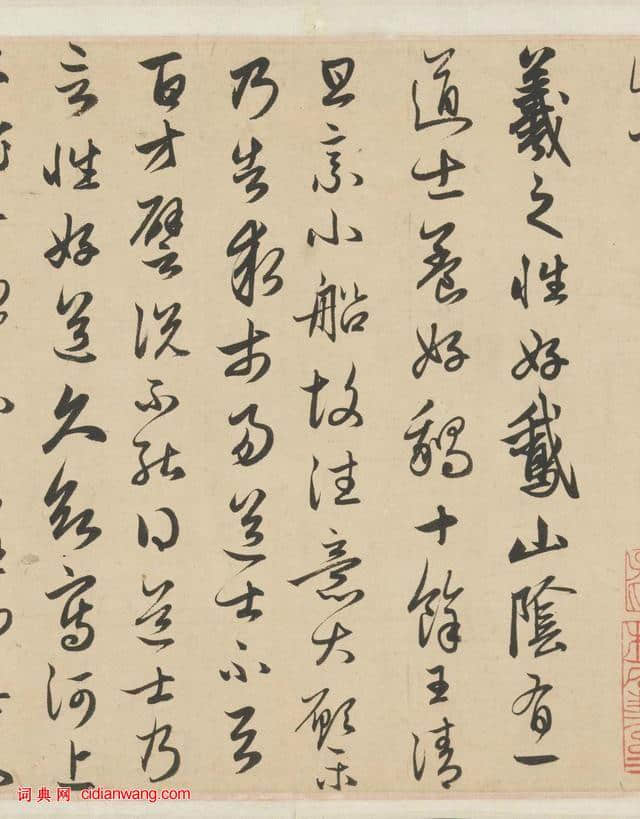 羲之性好鵞山陰有一
道士養好鵝十餘王清
旦乘小船故往意大願樂
乃告求市易道士不与
百方譬説不能得道士乃
言性好道久欲寫河上
词典网 cidianwang.com